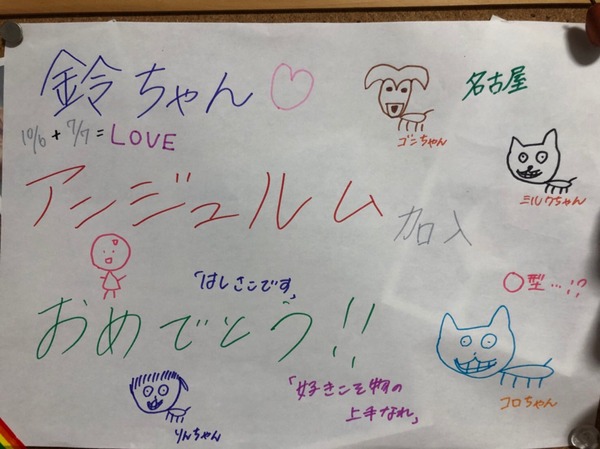 鈴ちゃん
名古屋
ゴンちゃん
10/6 + 7/7 = LOVE
ミルクちゃん
アンジュルム
加入
「はしさこです」
〇型…!?
おめでとう!!
りんちゃん
「好きこそ物の
上手なれ」
コロちゃん